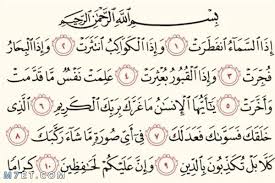 بِسْمِ اللَّهِ الرَّحْمَٰنِ الرَّحِيمِ
إِذَا السَّمَاءُ انفَطَرَتْ ١ وَإِذَا الْكَوَاكِبُ انتَثَرَتْ ٢ وَإِذَا الْبِحَارُ
فُجِّرَتْ ٣ وَإِذَا الْقُبُورُ بُعْثِرَتْ ٤ عَلِمَتْ نَفْسٌ مَّا قَدَّمَتْ
وَأَخَّرَتْ ٥ يَٰٓأَيُّهَا الْإِنسَٰنُ مَا غَرَّكَ بِرَبِّكَ الْكَرِيمِ ٦ الَّذِي
خَلَقَكَ فَسَوَّىٰكَ فَعَدَلَكَ ٧ فِىٓ أَىِّ صُورَةٍ مَّا شَآءَ رَكَّبَكَ ٨
كَلَّا بَلْ تُكَذِّبُونَ بِالدِّينِ ٩ وَإِنَّ عَلَيْكُمْ لَحَٰفِظِينَ ١٠ كِرَامًا
M7ET.COM